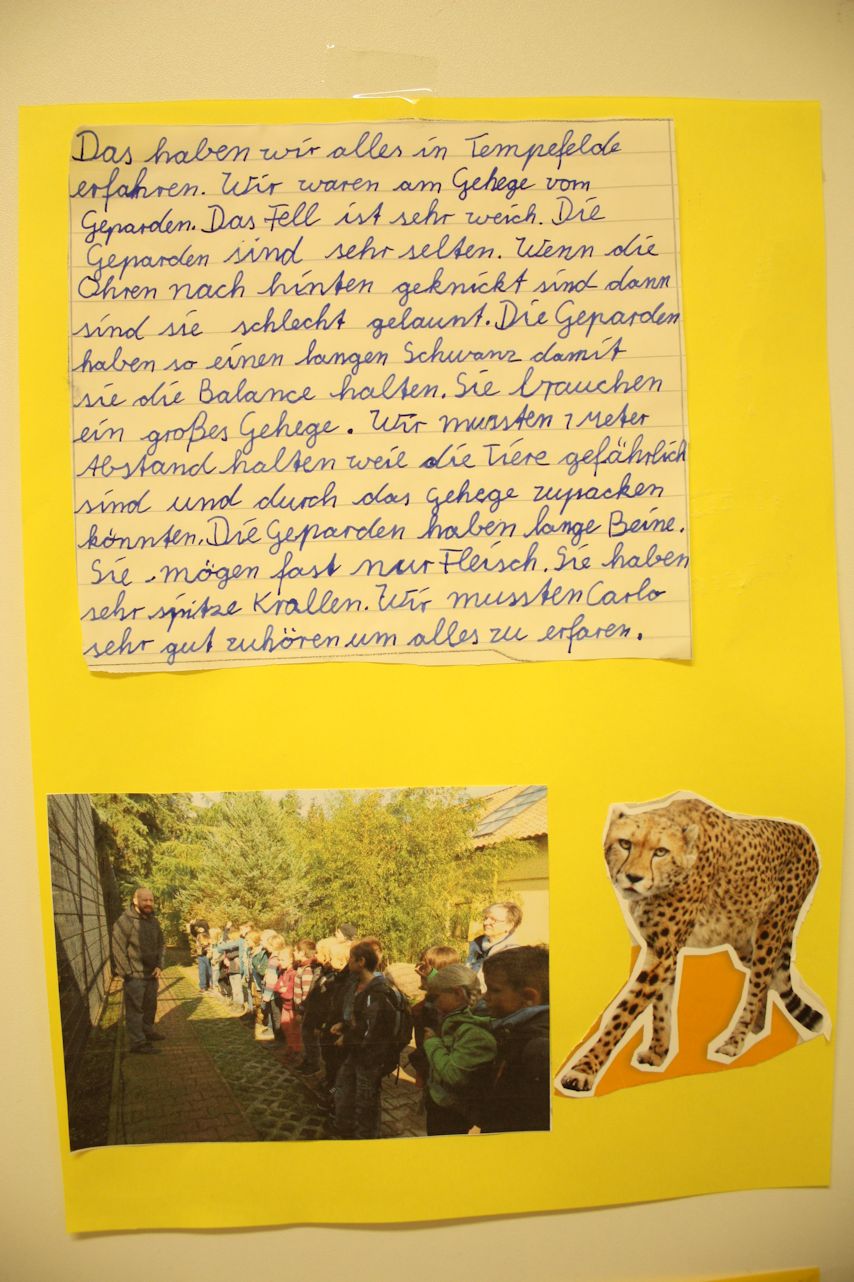 Das haben wir alles in Tempefelde
erfahren. Wir waren am Gehege vom
Geparden. Das Fell ist sehr weich. Die
Geparden sind sehr selten. Wenn die
Ohren nach hinten geknickt sind dann
sind sie schlecht gelaunt. Die Geparden
haben so einen langen Schwanz damit
sie die Balance halten. Sie brauchen
ein großes Gehege. Wir mussten 1 Meter
Abstand halten weil die Tiere gefährlich
sind und durch das Gehege zupacken
könnten. Die Geparden haben lange Beine.
Sie mögen fast nur Fleisch. Sie haben
sehr spitze Krallen. Wir mussten Carlo
sehr gut zuhören um alles zu erfaren.